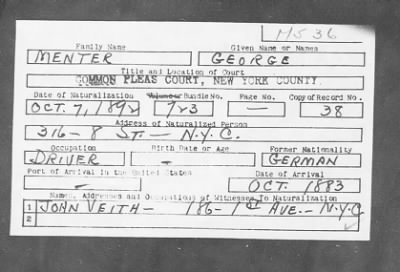 M536
Family Name Given Name or Names
MENTER GEORGE
Title and Location of Court
COMMON PLEAS COURT, NEW YORK COUNTY
Date of Naturalization Volume or Bundle No. Page No. Copy of Record No.
OCT. 7, 1892 723 — 38
Address of Naturalized Person
316 - 8 ST. — N.Y.C.
Occupation Birth Date or Age Former Nationality
DRIVER - GERMAN
Port of Arrival in the United States Date of Arrival
- OCT. 1883
Names, Addresses and Occupations of Witnesses To Naturalization
1 JOHN VEITH — 186 - 1ST AVE. - N.Y.C
2